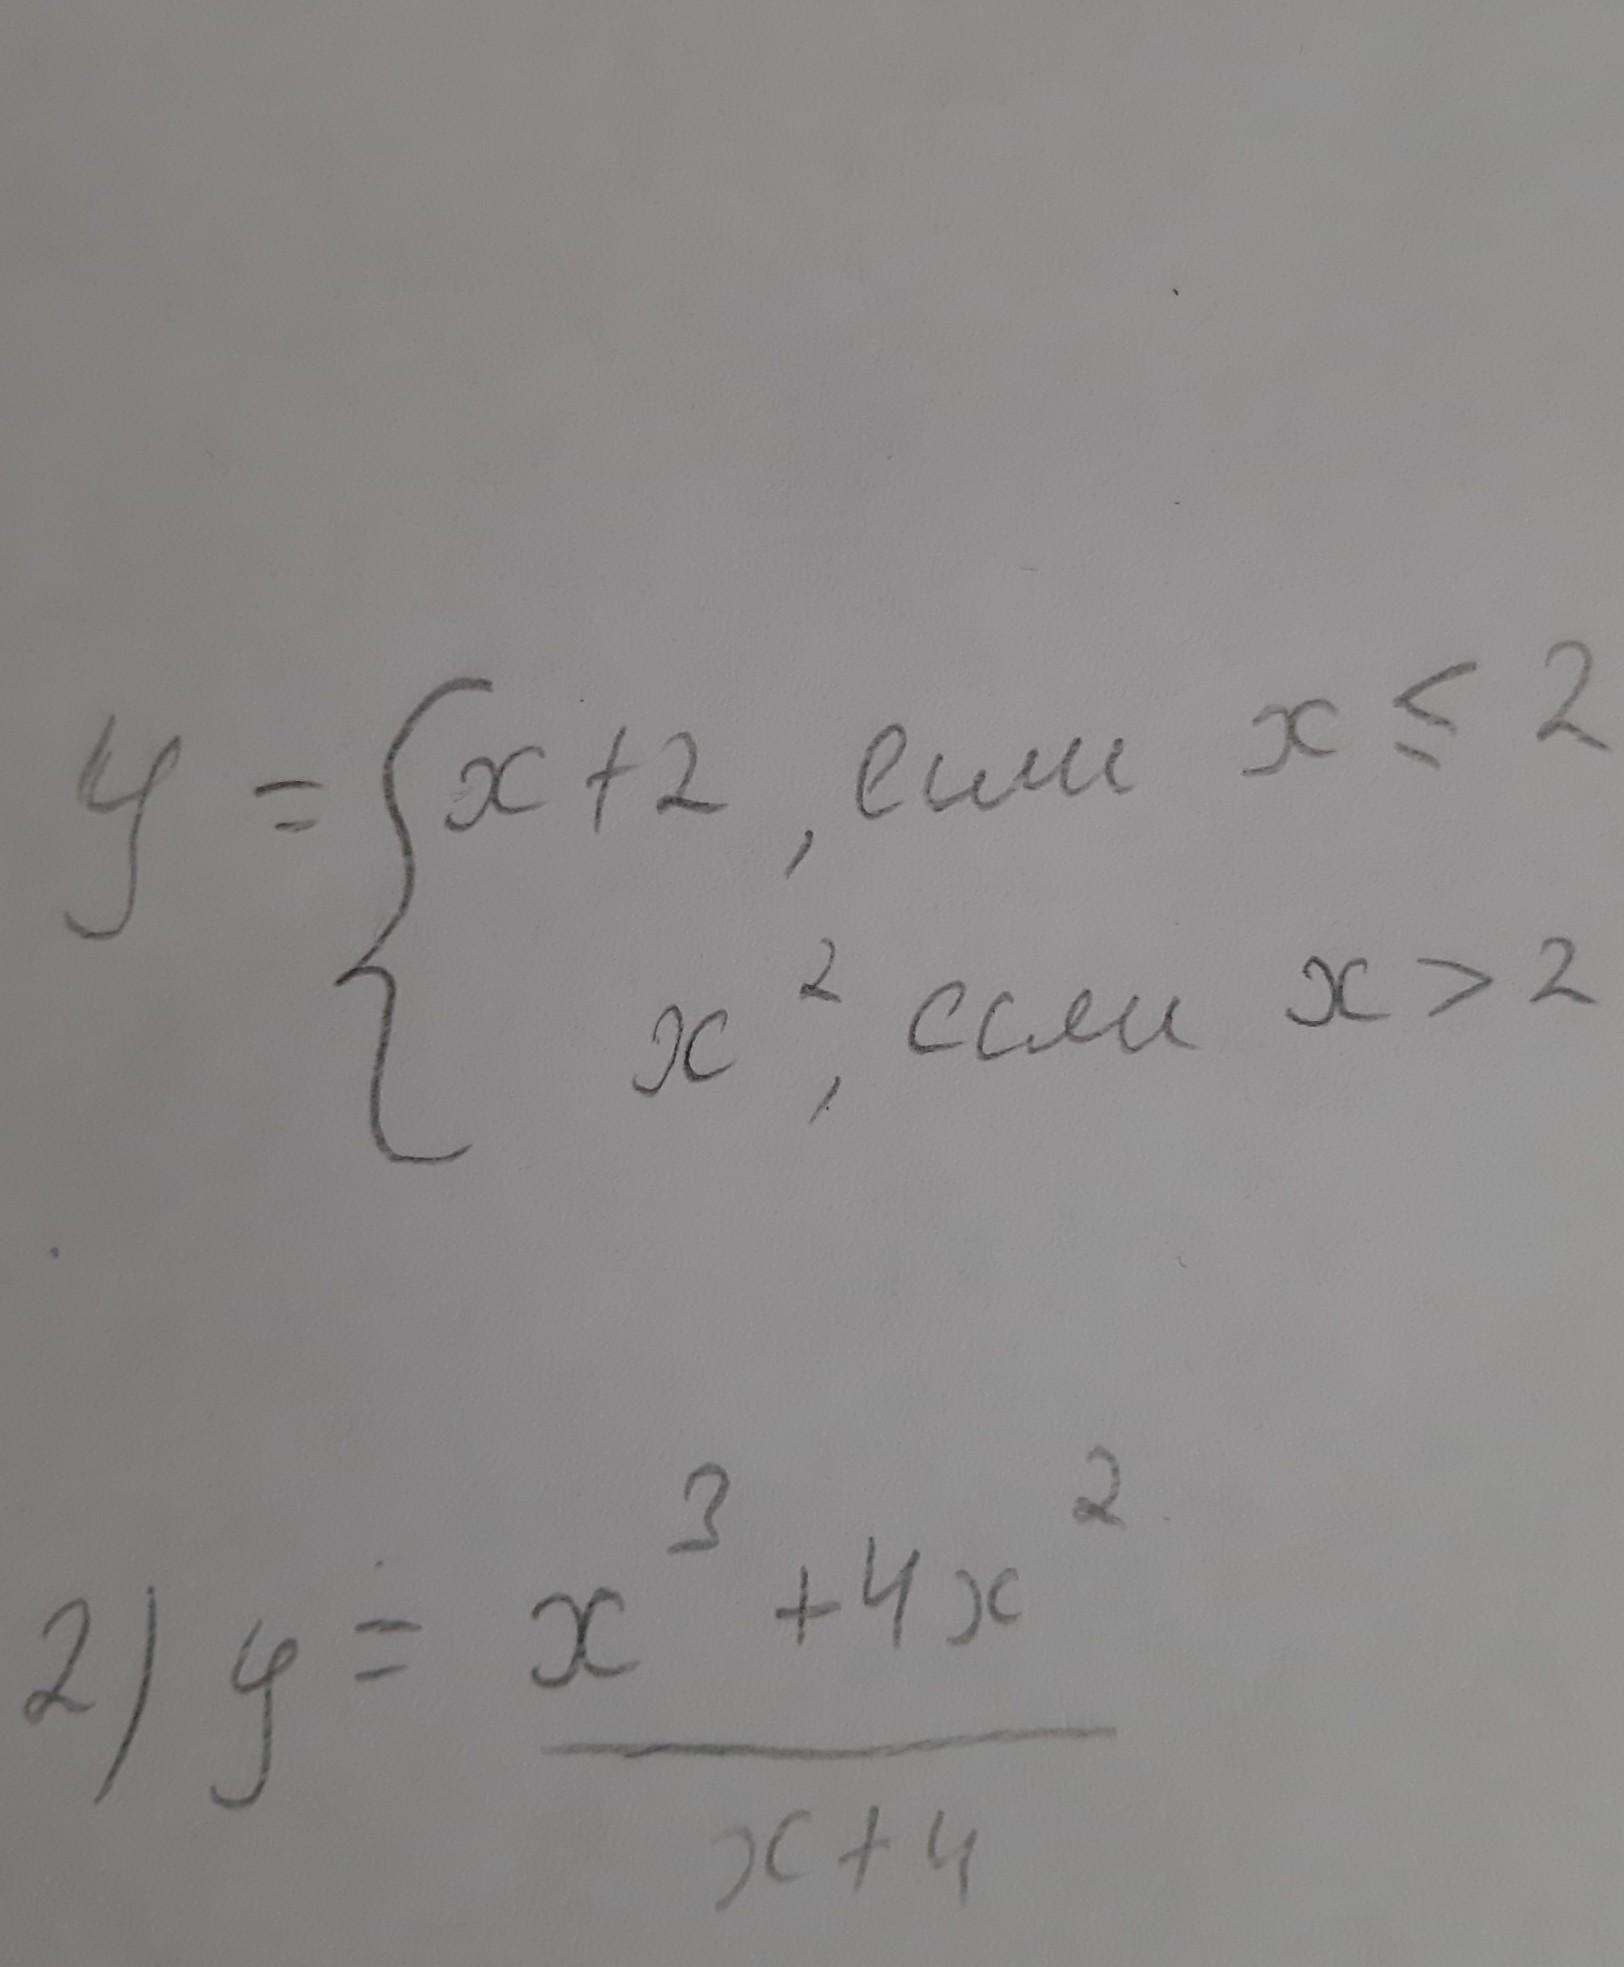 y = { x + 2, если x ≤ 2
x², если x > 2
2) y = x³ + 4x²
x + 4